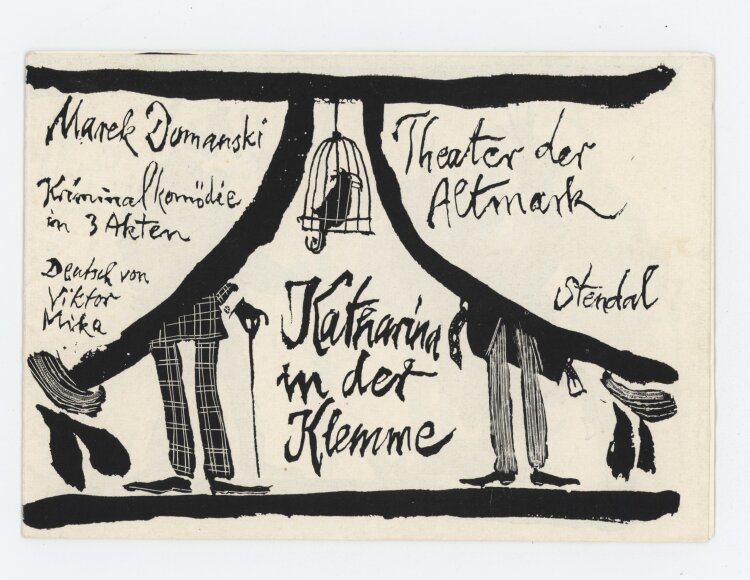 Marek Domanski
Kriminalkomödie
in 3 Akten
Deutsch von
Viktor
Mika
Theater der
Altmark
Stendal
Katharina
in der
Klemme